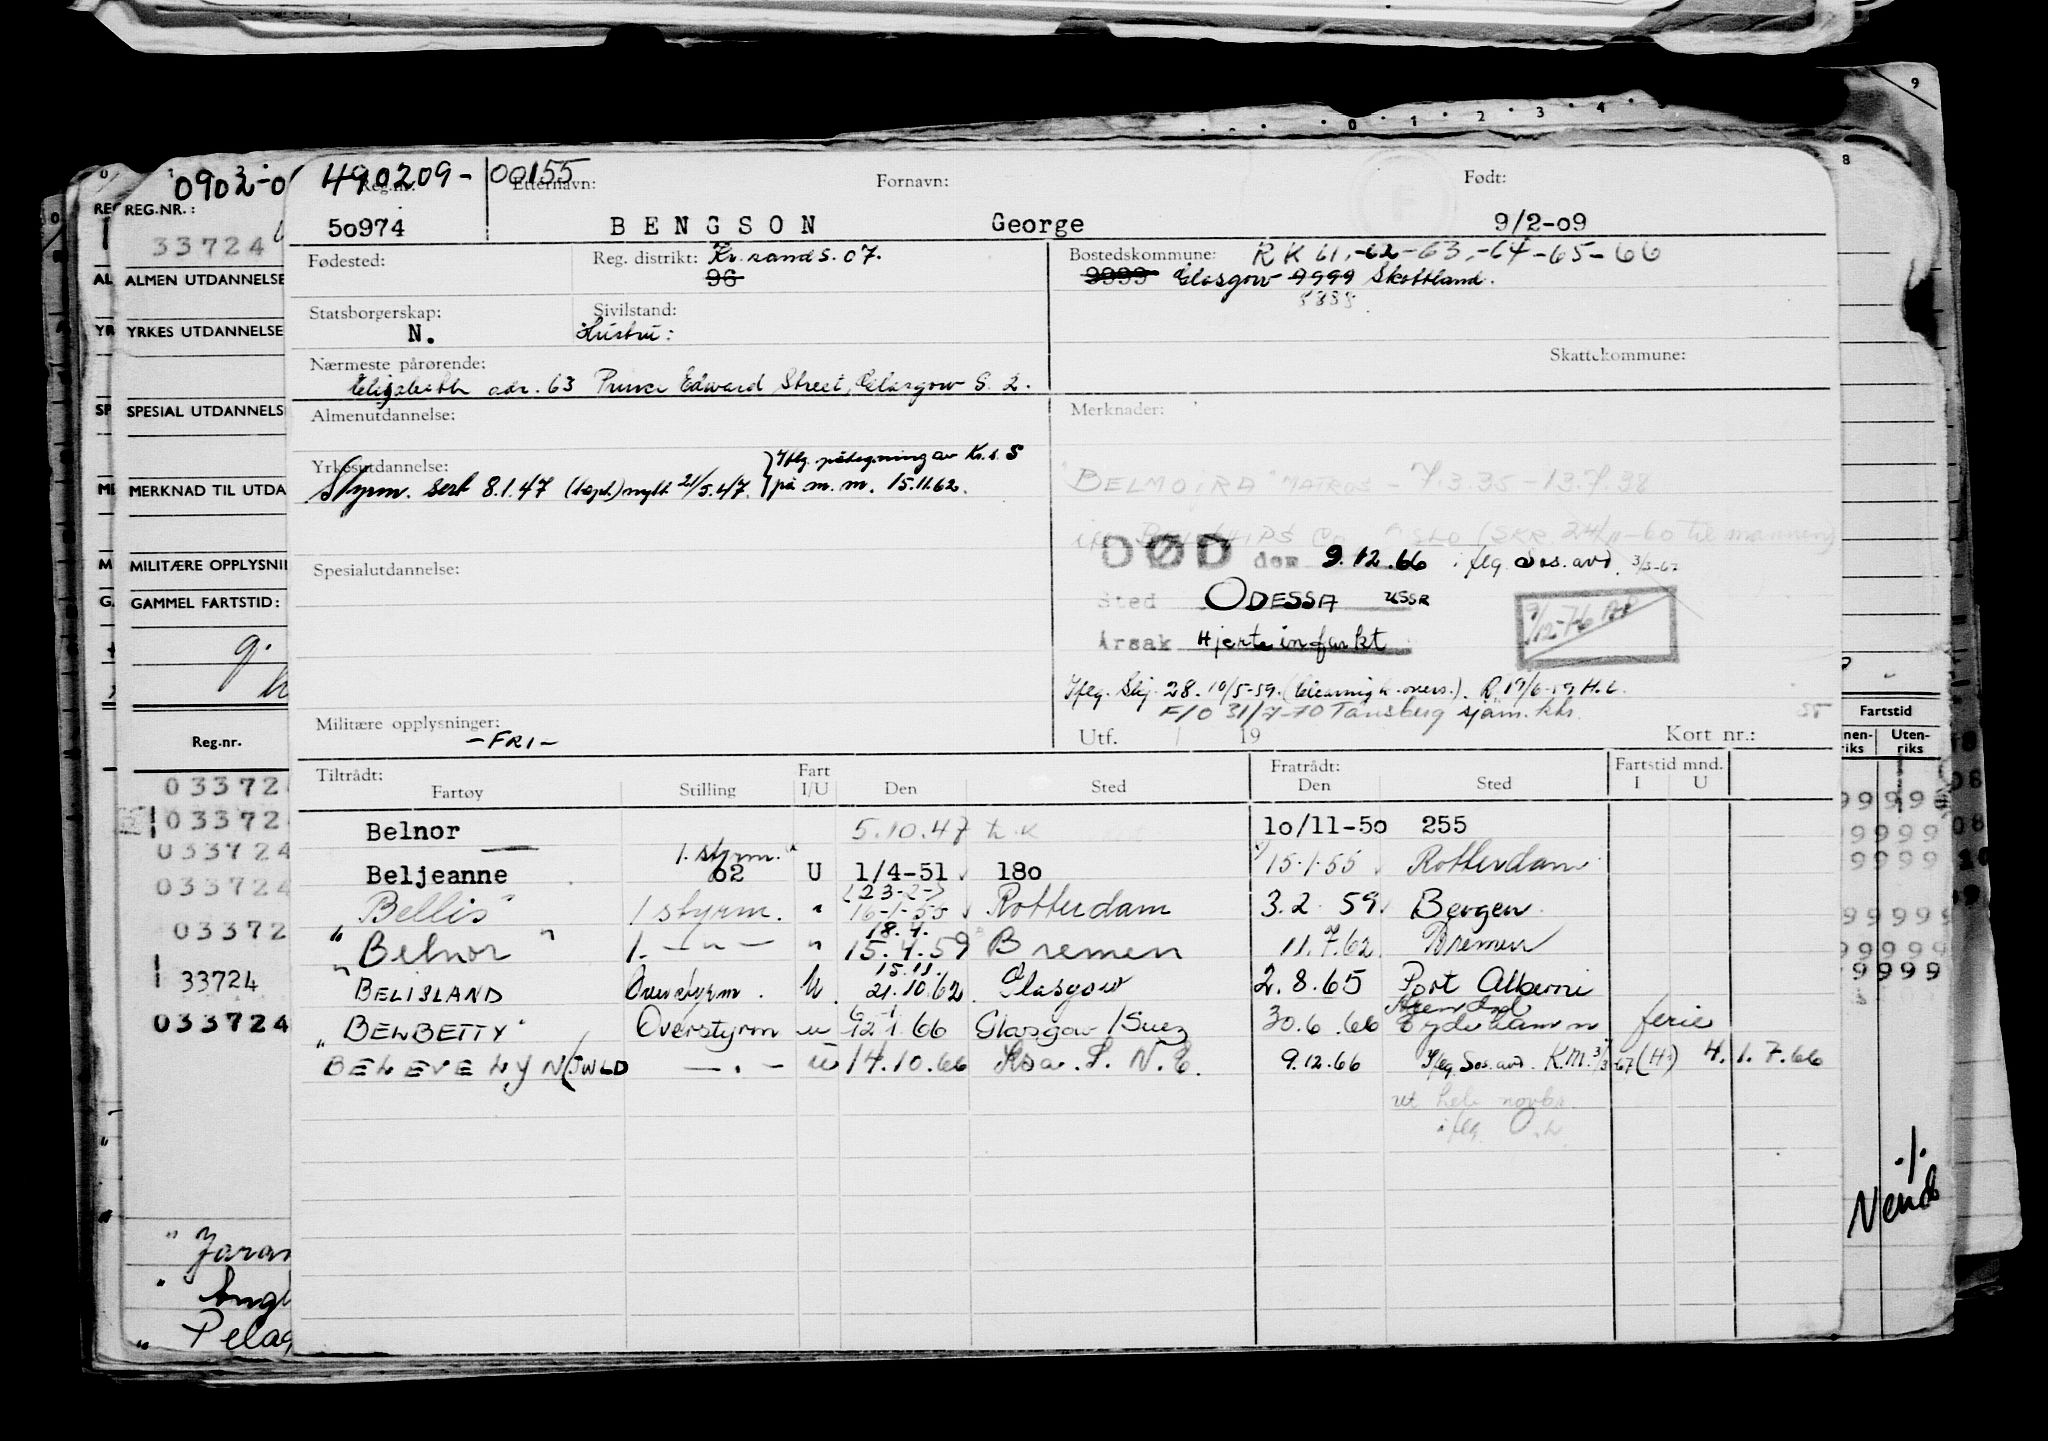 490209-00155
Reg.nr.: Etternavn: Fornavn: Født:
50974 BENGSON George 9/2-09
Fødested: Reg. distrikt: Kr.sand S. 07. Bostedskommune: RK 61,-62-63,-64-65-66
96 9999 Glasgow 9999 Skottland.
Statsborgerskap: Sivilstand:
N. Hustru:
Nærmeste pårørende: Skattekommune:
Elizabeth adr. 63 Prince Edward Street, Glasgow S. 2.
Almenutdannelse: Merknader:
Iflg. påtegning av Kr.s. S
Yrkesutdannelse:
Styrm. sert 8.1.47 nytt 21/5.47. på m.m. 15.11.62.
"BELMOIRA" MATROS - 7.3.35 - 13.7.38
DØD den 9.12.66 iflg. Sos. avd. 3/3-67
Spesialutdannelse:
Sted ODESSA USSR
9/12-76
Årsak Hjerteinfarkt
Iflg. Skj. 28. 10/5-59. R 19/6-59 H.L.
F/O 31/7-70 Tønsberg sjøm. ktr.
Militære opplysninger: Utf. 19 Kort nr.:
-FRI-
Tiltrådt: Fart Fratrådt: Fartstid mnd.
Fartøy Stilling I/U Den Sted Den Sted I U
Belnor 5.10.47 10/11-50 255
Beljeanne 1. styrm. 02 U 1/4-51 180 15.1.55 Rotterdam
"Bellis" 1 styrm. " (23-2-) 16-1-55 Rotterdam 3.2.59 Bergen
"Belnor" 1. - " - " 18.4. 15.4.59 Bremen 11.7.62 Bremen
"BELISLAND Overstyrm. U 15.11. 21.10.62 Glasgow 2.8.65 Port Alberni
"BELBETTY" Overstyrm u 6-1 12.1.66 Glasgow/Suez 30.6.66 Arendal Eydehamn ferie
BELEVELYN (JWLD - . - u 14.10.66 9.12.66 Iflg. Sos. avd. K.M. 3/3-67 (H) 4. 1.7.66
0902-0
REG.NR.:
33724
ALMEN UTDANNELSE
YRKES UTDANNELSE
SPESIAL UTDANNELS
MERKNAD TIL UTDA
MILITÆRE OPPLYSNI
GAMMEL FARTSTID:
Reg.nr.
03372
03372
033724
033724
03372
33724
033724
Fartstid
nen-riks Uten-riks
999
999
999
999
999
9999
"Pelag
./.
Vend